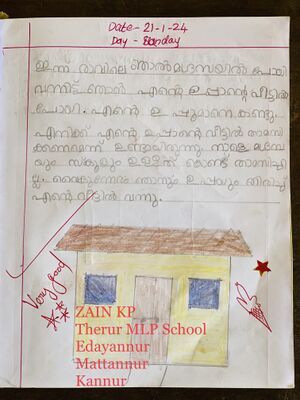 Date- 21-1-24
Day - Sunday
ഇന്ന് രാവിലെ ഞാൻ മദ്രസയിൽ പോയി
വന്നിട്ട് ഞാൻ എൻ്റെ ഉപ്പാൻ്റെ വീട്ടിൽ
പോയി. എൻ്റെ ഉപ്പൂമാനെ കണ്ടു.
എനിക്ക് എൻ്റെ ഉപ്പാൻ്റെ വീട്ടിൽ താമസി
ക്കണമെന്ന് ഉണ്ടായിരുന്നു നാളെ മദ്രസ
യും സ്കൂളും ഉള്ളത് കൊണ്ട് താമസിച്ചി
ല്ല. വൈകുന്നേരം ഞാനും ഉപ്പയും തിരിച്ച്
എൻ്റെ വീട്ടിൽ വന്നു.
Very good
ZAIN KP
Therur MLP School
Edayannur
Mattannur
Kannur